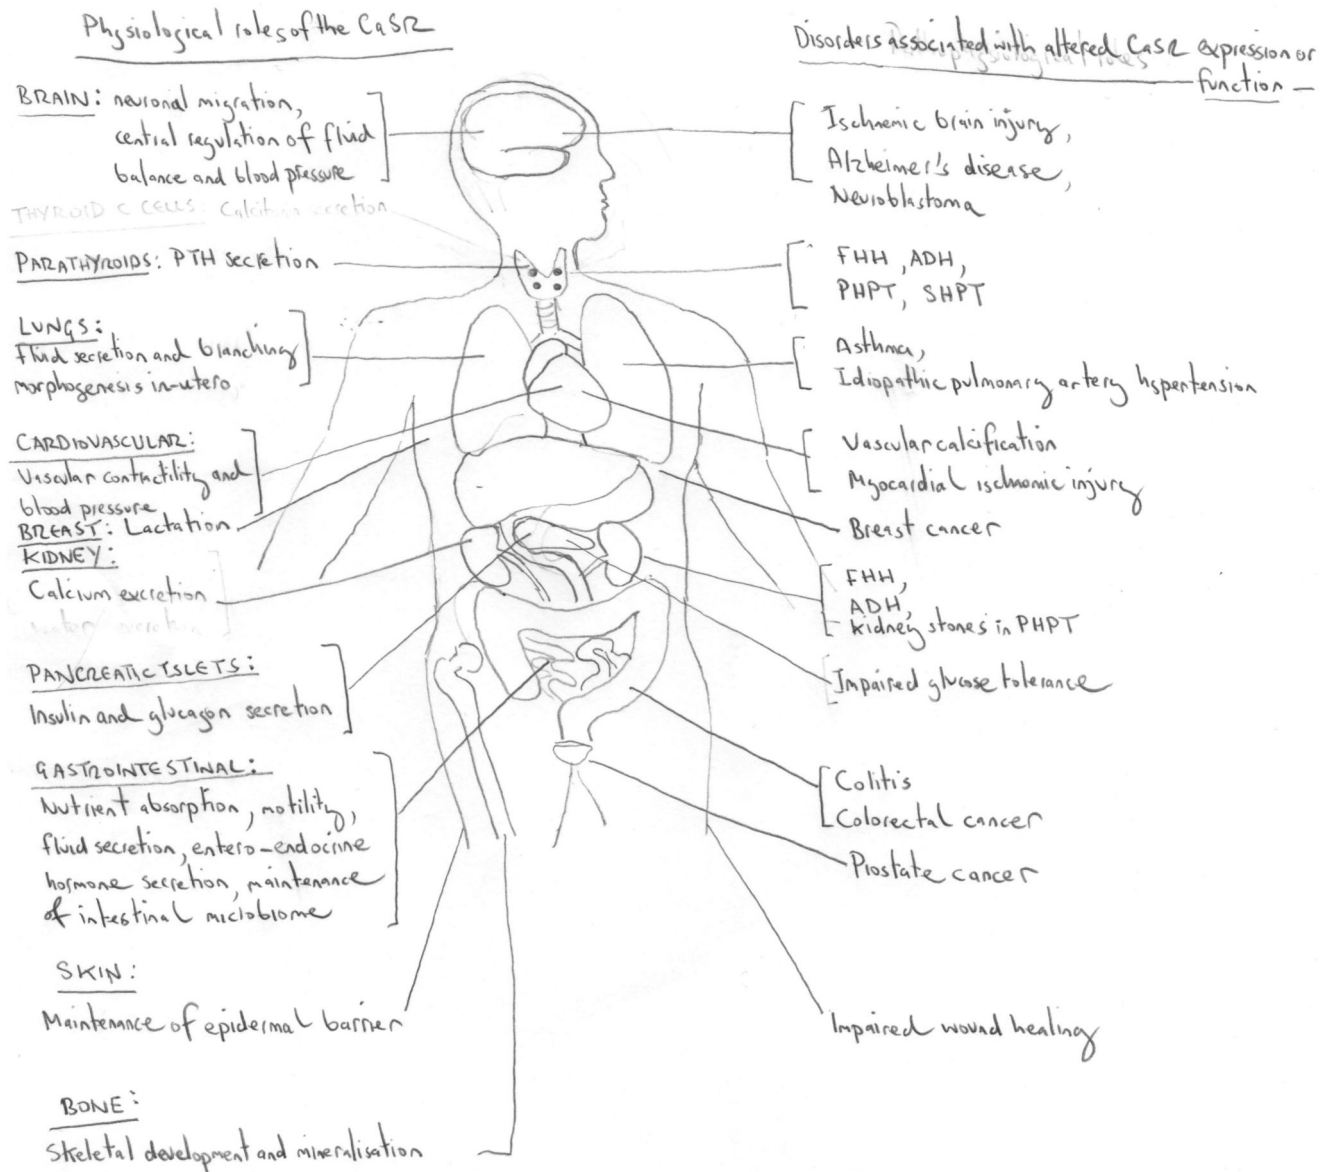 Physiological roles of the CaSR
BRAIN: neuronal migration,
central regulation of fluid
balance and blood pressure
THYROID C CELLS: secretion
PARATHYROIDS: PTH secretion
LUNGS:
Fluid secretion and branching
morphogenesis in-utero
CARDIOVASCULAR:
Vascular contractility and
blood pressure
BREAST: Lactation
KIDNEY:
Calcium excretion
PANCREATIC ISLETS:
Insulin and glucagon secretion
GASTROINTESTINAL:
Nutrient absorption, motility,
fluid secretion, entero-endocrine
hormone secretion, maintenance
of intestinal microbiome
SKIN:
Maintenance of epidermal barrier
BONE:
Skeletal development and mineralisation
Disorders associated with altered CaSR expression or
function —
Ischaemic brain injury,
Alzheimer's disease,
Neuroblastoma
FHH, ADH,
PHPT, SHPT
Asthma,
Idiopathic pulmonary artery hypertension
Vascular calcification
Myocardial ischaemic injury
Breast cancer
FHH,
ADH,
kidney stones in PHPT
Impaired glucose tolerance
Colitis
Colorectal cancer
Prostate cancer
Impaired wound healing